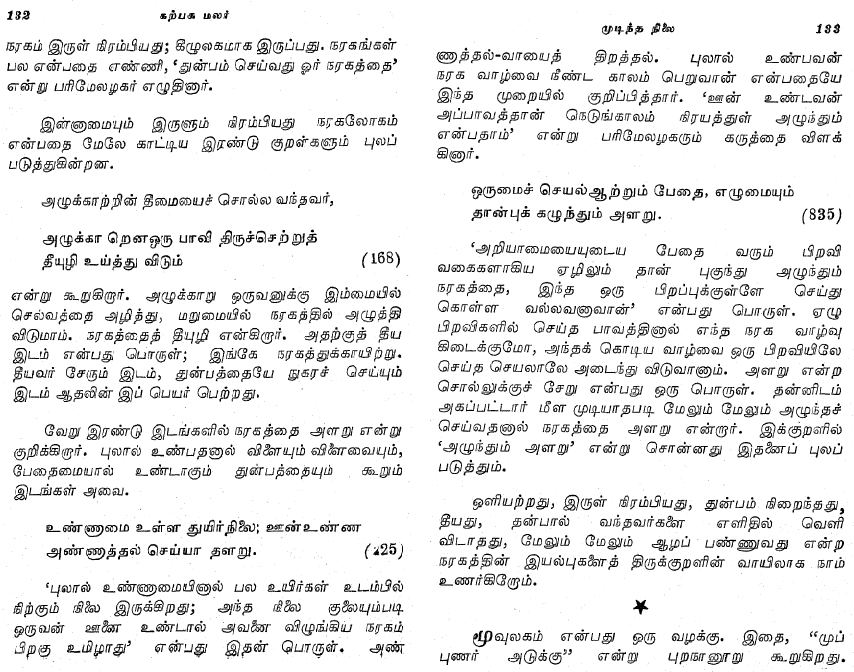 132 கற்பக மலர்
நரகம் இருள் நிரம்பியது; கீழுலகமாக இருப்பது. நரகங்கள்
பல என்பதை எண்ணி, ‘துன்பம் செய்வது ஓர் நரகத்தை’
என்று பரிமேலழகர் எழுதினார்.
இன்னாமையும் இருளும் நிரம்பியது நரகலோகம்
என்பதை மேலே காட்டிய இரண்டு குறள்களும் புலப்
படுத்துகின்றன.
அழுக்காற்றின் தீமையைச் சொல்ல வந்தவர்,
அழுக்கா றெனஒரு பாவி திருச்செற்றுத்
தீயுழி உய்த்து விடும் (168)
என்று கூறுகிறார். அழுக்காறு ஒருவனுக்கு இம்மையில்
செல்வத்தை அழித்து, மறுமையில் நரகத்தில் அழுத்தி
விடுமாம். நரகத்தைத் தீயுழி என்கிறார். அதற்குத் தீய
இடம் என்பது பொருள்; இங்கே நரகத்துக்காயிற்று.
தீயவர் சேரும் இடம், துன்பத்தையே நுகரச் செய்யும்
இடம் ஆதலின் இப் பெயர் பெற்றது.
வேறு இரண்டு இடங்களில் நரகத்தை அளறு என்று
குறிக்கிறார். புலால் உண்பதனால் விளையும் விளைவையும்,
பேதைமையால் உண்டாகும் துன்பத்தையும் கூறும்
இடங்கள் அவை.
உண்ணாமை உள்ள துயிர்நிலை; ஊன்உண்ண
அண்ணாத்தல் செய்யா தளறு. (225)
‘புலால் உண்ணாமையினால் பல உயிர்கள் உடம்பில்
நிற்கும் நிலை இருக்கிறது; அந்த நிலை குலையும்படி
ஒருவன் ஊனை உண்டால் அவனை விழுங்கிய நரகம்
பிறகு உமிழாது’ என்பது இதன் பொருள். அண்
முடிந்த நிலை 133
ணாத்தல்-வாயைத் திறத்தல். புலால் உண்பவன்
நரக வாழ்வை நீண்ட காலம் பெறுவான் என்பதையே
இந்த முறையில் குறிப்பித்தார். ‘ஊன் உண்டவன்
அப்பாவத்தான் நெடுங்காலம் நிரயத்துள் அழுந்தும்
என்பதாம்’ என்று பரிமேலழகரும் கருத்தை விளக்
கினார்.
ஒருமைச் செயல்ஆற்றும் பேதை, எழுமையும்
தான்புக் கழுந்தும் அளறு. (835)
‘அறியாமையையுடைய பேதை வரும் பிறவி
வகைகளாகிய ஏழிலும் தான் புகுந்து அழுந்தும்
நரகத்தை, இந்த ஒரு பிறப்புக்குள்ளே செய்து
கொள்ள வல்லவனாவான்’ என்பது பொருள். ஏழு
பிறவிகளில் செய்த பாவத்தினால் எந்த நரக வாழ்வு
கிடைக்குமோ, அந்தக் கொடிய வாழ்வை ஒரு பிறவியிலே
செய்த செயலாலே அடைந்து விடுவானாம். அளறு என்ற
சொல்லுக்குச் சேறு என்பது ஒரு பொருள். தன்னிடம்
அகப்பட்டார் மீள முடியாதபடி மேலும் மேலும் அழுந்தச்
செய்வதனால் நரகத்தை அளறு என்றார். இக்குறளில்
‘அழுந்தும் அளறு’ என்று சொன்னது இதனைப் புலப்
படுத்தும்.
ஒளியற்றது, இருள் நிரம்பியது, துன்பம் நிறைந்தது,
தீயது, தன்பால் வந்தவர்களை எளிதில் வெளி
விடாதது, மேலும் மேலும் ஆழப் பண்ணுவது என்ற
நரகத்தின் இயல்புகளைத் திருக்குறளின் வாயிலாக நாம்
உணர்கிறோம்.
★
மூவுலகம் என்பது ஒரு வழக்கு. இதை, “முப்
புணர் அடுக்கு” என்று புறநானூறு கூறுகிறது.